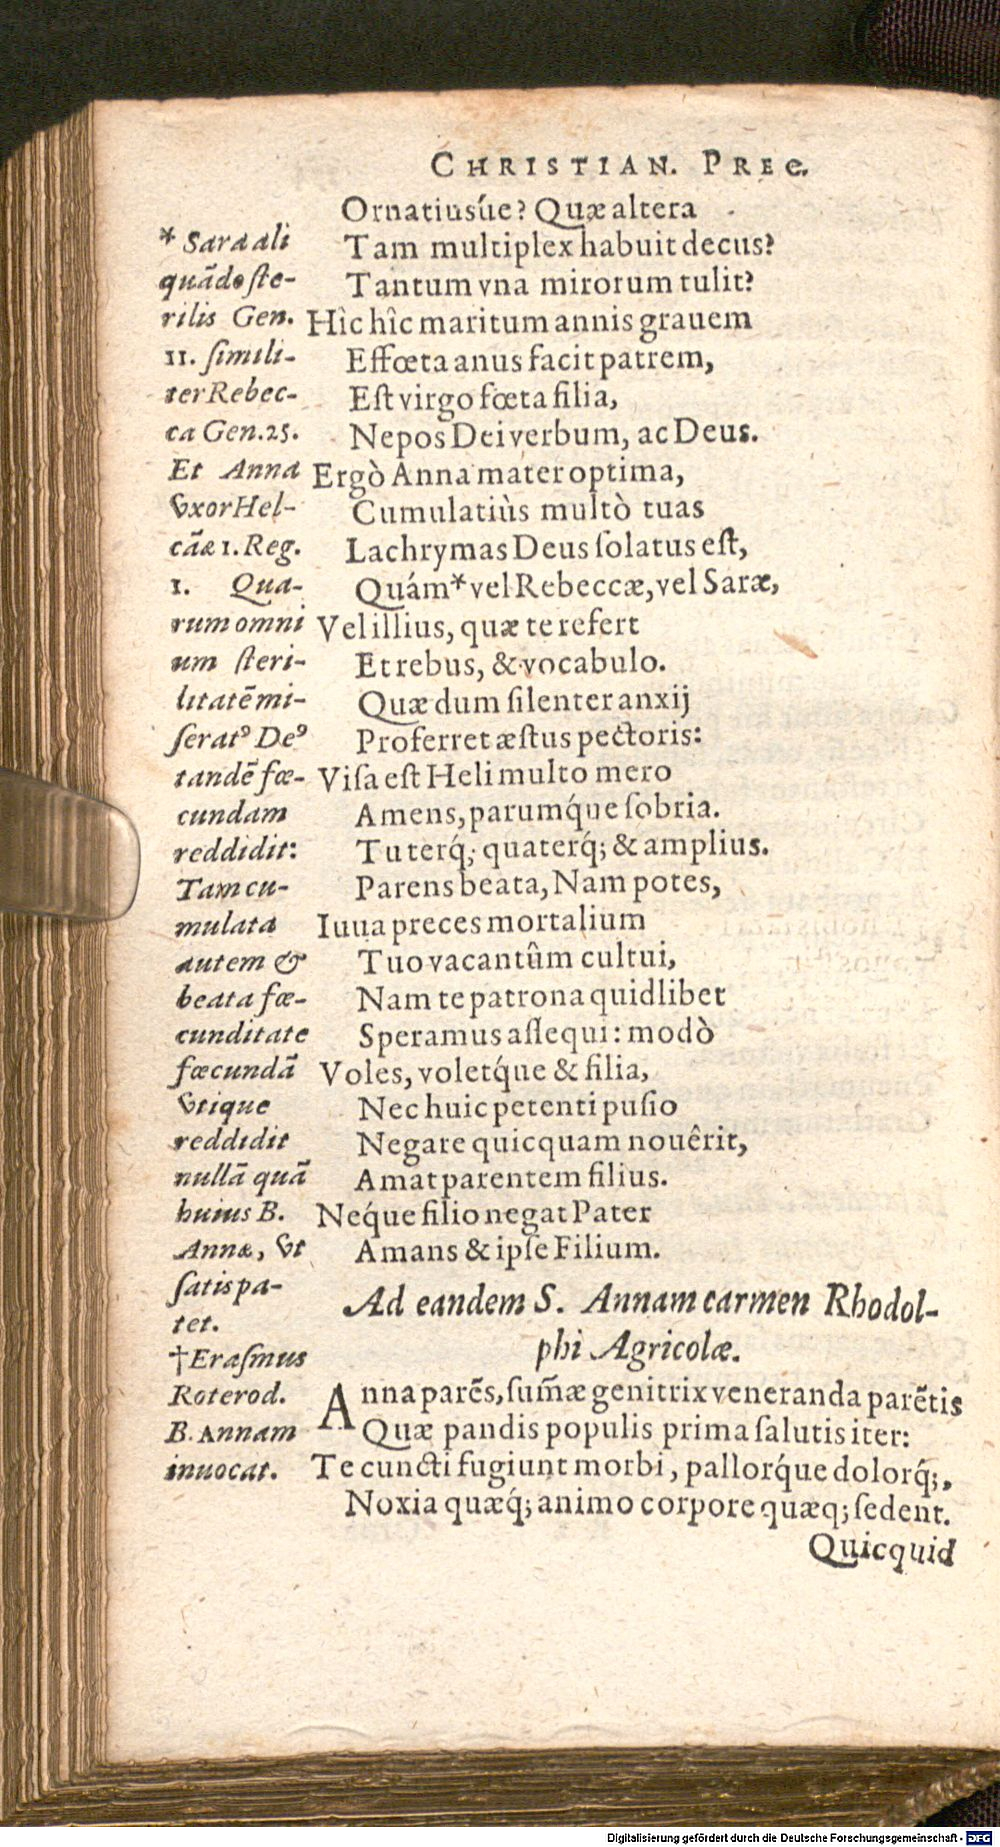 CHRISTIAN. PREC.
Ornatiusúe? Quæ altera
Tam multiplex habuit decus?
Tantum vna mirorum tulit?
Hîc hîc maritum annis grauem
Effœta anus facit patrem,
Eſt virgo fœta filia,
Nepos Dei verbum, ac Deus.
Ergò Anna mater optima,
Cumulatiùs multò tuas
Lachrymas Deus ſolatus eſt,
Quám* vel Rebeccæ, vel Saræ,
Vel illius, quæ te refert
Et rebus, & vocabulo.
Quæ dum ſilenter anxij
Proferret æſtus pectoris:
Viſa eſt Heli multo mero
Amens, parumq́ue ſobria.
Tu terq́; quaterq́; & amplius.
Parens beata, Nam potes,
Iuua preces mortalium
Tuo vacantûm cultui,
Nam te patrona quidlibet
Speramus aſſequi: modò
Voles, voletq́ue & filia,
Nec huic petenti puſio
Negare quicquam nouêrit,
Amat parentem filius.
Neq́ue filio negat Pater
Amans & ipſe Filium.
* Sara ali
quādo ſte-
rilis Gen.
11. ſimili-
ter Rebec-
ca Gen.25.
Et Anna
vxor Hel-
cāæ 1. Reg.
1. Qua-
rum omni
um ſteri-
litatē mi-
ſeratꝰ Deꝰ
tandē fœ-
cundam
reddidit:
Tam cu-
mulata
autem &
beata fœ-
cunditate
fœcundā
vtique
reddidit
nullā quā
huius B.
Annæ, vt
ſatis pa-
tet.
†Eraſmus
Roterod.
B. Annam
inuocat.
Ad eandem S. Annam carmen Rhodol-
phi Agricolæ.
Anna parēs, ſum̄æ genitrix veneranda parētis
Quæ pandis populis prima ſalutis iter:
Te cuncti fugiunt morbi, pallorq́ue dolorq́;,
Noxia quæq́; animo corpore quæq; ſedent.
Quicquid
Digitalisierung gefördert durch die Deutsche Forschungsgemeinschaft - DFG